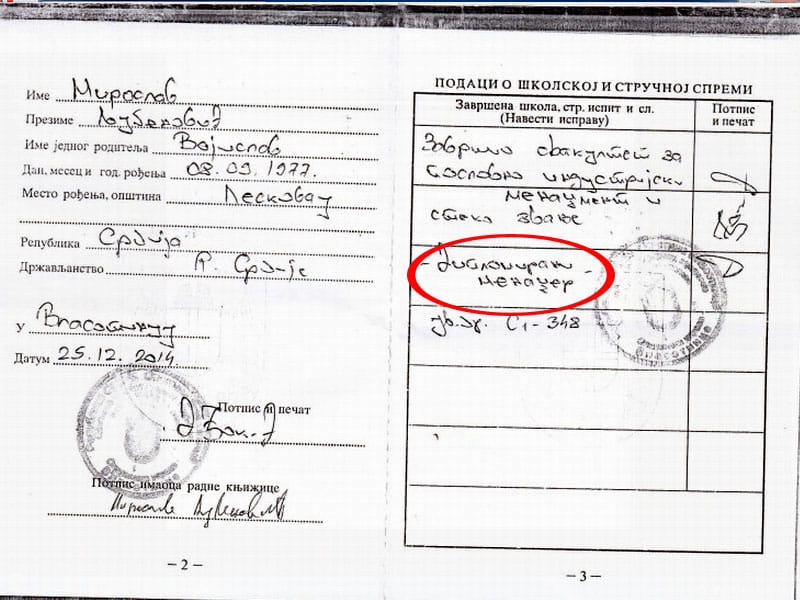 Име Мирослав
Презиме Љубеновић
Име једног родитеља Војислав
Дан, месец и год. рођења 08.09.1977.
Место рођења, општина Лесковац
Република Србија
Држављанство Р. Србије
У Власотинцу
Датум 25.12.2014
Потпис и печат
Потпис имаоца радне књижице
Мирослав Љубеновић
– 2 –
ПОДАЦИ О ШКОЛСКОЈ И СТРУЧНОЈ СПРЕМИ
Завршена школа, стр. испит и сл.
(Навести исправу)
Потпис
и печат
Завршио факултет за
пословно индустријски
менаџмент и
стекао звање
- Дипломирани
менаџер -
С1-348
– 3 –